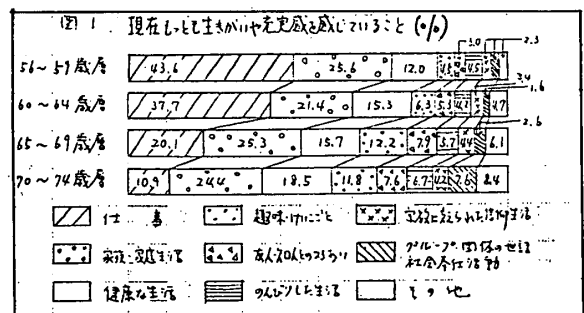 図1 現在もっとも生きがいや充実感を感じていること (%)
3.0 2.3
56～59歳層 43.6 25.6 12.0 4.5 4.5 4.5
3.4
1.6
60～64歳層 37.7 21.4 15.3 6.3 5.3 4.2 4.7
2.6
65～69歳層 20.1 25.3 15.7 12.2 7.9 5.7 4.4 6.1
70～74歳層 10.9 24.4 18.5 11.8 7.6 6.7 4.2 7.6 8.4
仕事 趣味・けいこごと 家族に支えられた
家族・家庭生活 友人・知人とのつきあい グループ・団体の世話
社会奉仕活動
健康な生活 のんびりした生活 その他